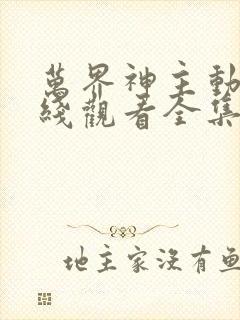 萬界神主動
綫觀看全集
地主家沒有魚